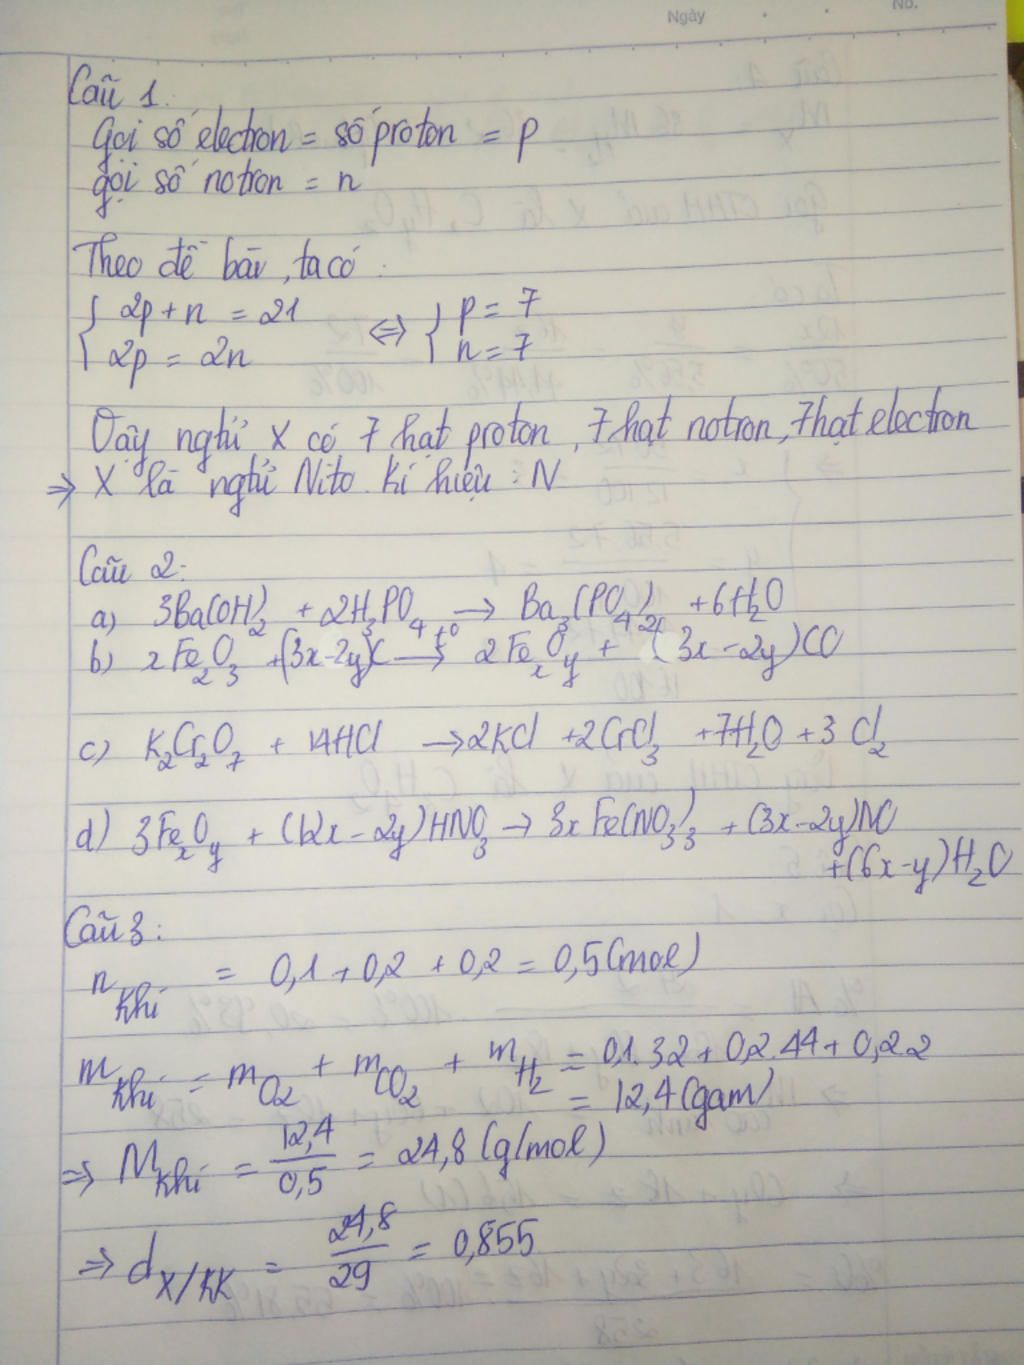 Ngày
No.
Câu 1.
Gọi số electron = số proton = p
gọi số notron = n
Theo đề bài, ta có:
{ 2p + n = 21
2p = 2n
⇔ { p = 7
n = 7
Vậy ngtử X có 7 hạt proton, 7 hạt notron, 7 hạt electron
⇒ X là ngtử Nito. Kí hiệu : N
Câu 2:
a) 3Ba(OH)₂ + 2H₃PO₄ → Ba₃(PO₄)₂ + 6H₂O
b) xFe₂O₃ + (3x-2y)C →t° 2FeₓOy + (3x-2y)CO
c) K₂Cr₂O₇ + 14HCl → 2KCl + 2CrCl₃ + 7H₂O + 3Cl₂
d) 3FeₓOy + (12x - 2y)HNO₃ → 3xFe(NO₃)₃ + (3x-2y)NO
+ (6x-y)H₂O
Câu 3:
n khí = 0,1 + 0,2 + 0,2 = 0,5 (mol)
m khí = m O₂ + m CO₂ + m H₂ = 0,1.32 + 0,2.44 + 0,2.2
= 12,4 (gam)
⇒ M khí = 12,4/0,5 = 24,8 (g/mol)
⇒ d X/KK = 24,8/29 = 0,855